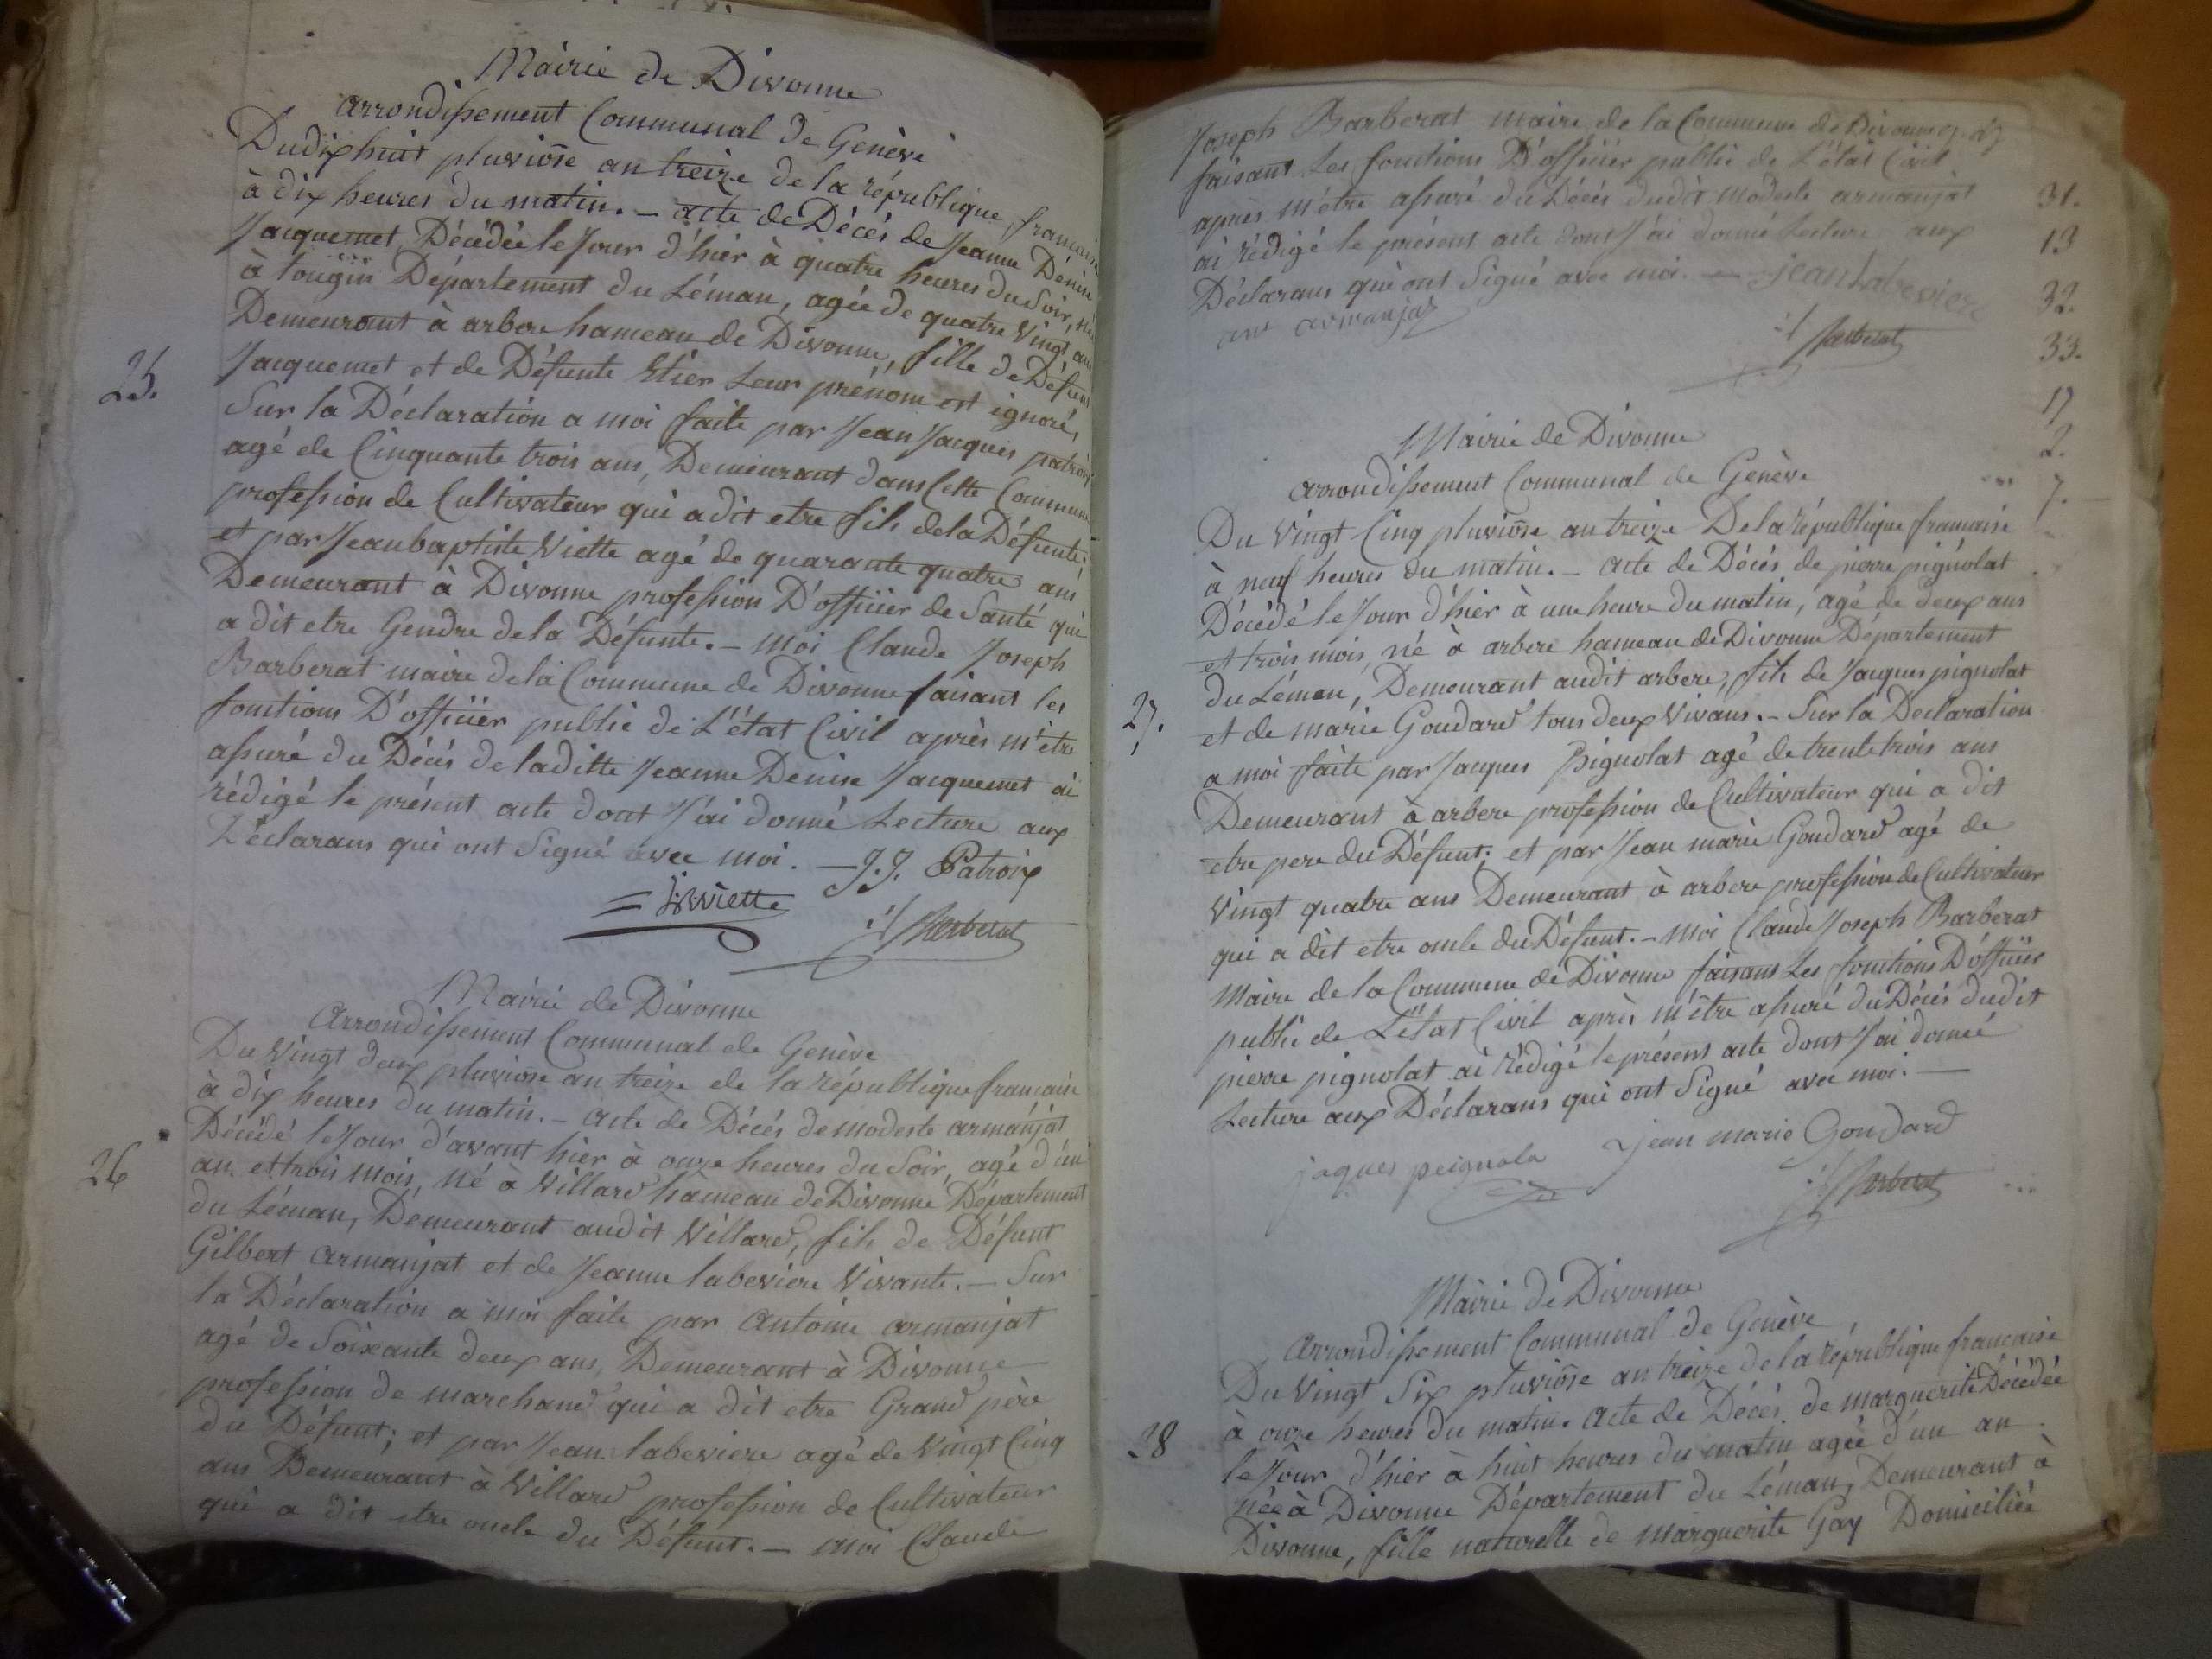 Mairie de Divonne
arrondissement Communal de Genève
Du dix huit pluviôse an treize de la république française
à dix heures du matin. – acte de Décés de Jeanne Dénise
Jacquemet, Décédée le Jour d'hier à quatre heures du Soir, née
à Tougin Département du Léman, agée de quatre Vingt ans
Demeurant à arbere hameau de Divonne, fille de Défunt
25.
Jacquemet et de Défunte Etier Leur prénom est ignoré,
Sur la Déclaration a moi faite par Jean Jacques patroix
agé de Cinquante trois ans, Demeurant dans Cette Commune
profession de Cultivateur qui a dit etre fils de la Défunte;
et par Jean baptiste Viette agé de quarante quatre ans
Demeurant à Divonne profession D'officier de Santé qui
a dit etre Gendre de la Défunte. – moi Claude Joseph
Barberat maire de la Commune de Divonne faisant les
fonctions D'officier public de L'état Civil après m'être
assuré du Décés de laditte Jeanne Denise Jacquemet ai
rédigé le présent acte dont J'ai donné Lecture aux
Déclarans qui ont Signé avec moi. — J.J. Patroix
Viette
Barberat
Mairie de Divonne
Arrondissement Communal de Genève
Du Vingt deux pluviose an treize de la république française
à dix heures du matin. – acte de Décés de modeste armanjat
Décédé le Jour d'avant hier à onze heures du Soir, agé d'un
26
an et trois mois, né à Villard hameau de Divonne Département
du Léman, Demeurant audit Villard, fils de Défunt
Gilbert armanjat et de Jeanne labeviere Vivante. – Sur
la Déclaration a moi faite par antoine armanjat
agé de Soixante deux ans, Demeurant à Divonne
profession de marchand qui a dit etre Grand père
du Défunt; et par Jean labeviere agé de Vingt Cinq
ans Demeurant à Villard profession de Cultivateur
qui a dit etre oncle du Défunt. – moi Claude
Joseph Barberat maire de la Commune de Divonne
faisant Les fonctions D'officier public de L'état Civil
après m'être assuré du Décés dudit modeste armanjat
31.
ai rédigé le présent acte dont J'ai donné Lecture aux
13
Déclarans qui ont Signé avec moi. — jean Labeviere
32.
ant armanjat
Barberat
33.
17
Mairie de Divonne
2.
arrondissement Communal de Genève
7.
Du Vingt Cinq pluviôse an treize De la république française
à neuf heures du matin. – acte de Décés de pierre pignolat
Décédé le Jour d'hier à une heure du matin, agé de deux ans
et trois mois, né à arbere hameau de Divonne Département
du Léman, Demeurant audit arbere, fils de Jacques pignolat
27.
et de marie Goudard tous deux Vivans. – Sur la Declaration
a moi faite par Jacques Pignolat agé de trente trois ans
Demeurant à arbere profession de Cultivateur qui a dit
etre pere du Défunt; et par Jean marie Goudard agé de
Vingt quatre ans Demeurant à arbere profession de Cultivateur
qui a dit etre oncle du Défunt. – moi Claude Joseph Barberat
Maire de la Commune de Divonne faisant Les fonctions D'officier
public de L'état Civil après m'être assuré du Décés dudit
pierre pignolat ai rédigé le présent acte dont J'ai donné
Lecture aux Déclarans qui ont Signé avec moi. —
jaques peignola jean marie Goudard
Barberat
Mairie de Divonne
Arrondissement Communal de Genève
Du Vingt Six pluviôse an treize de la république française
à onze heures du matin. acte de Décés de marguerite Décédée
28
le Jour d'hier à huit heures du matin agée d'un an
née à Divonne Département du Léman, Demeurant à
Divonne, fille naturelle de marguerite Gay Domiciliée